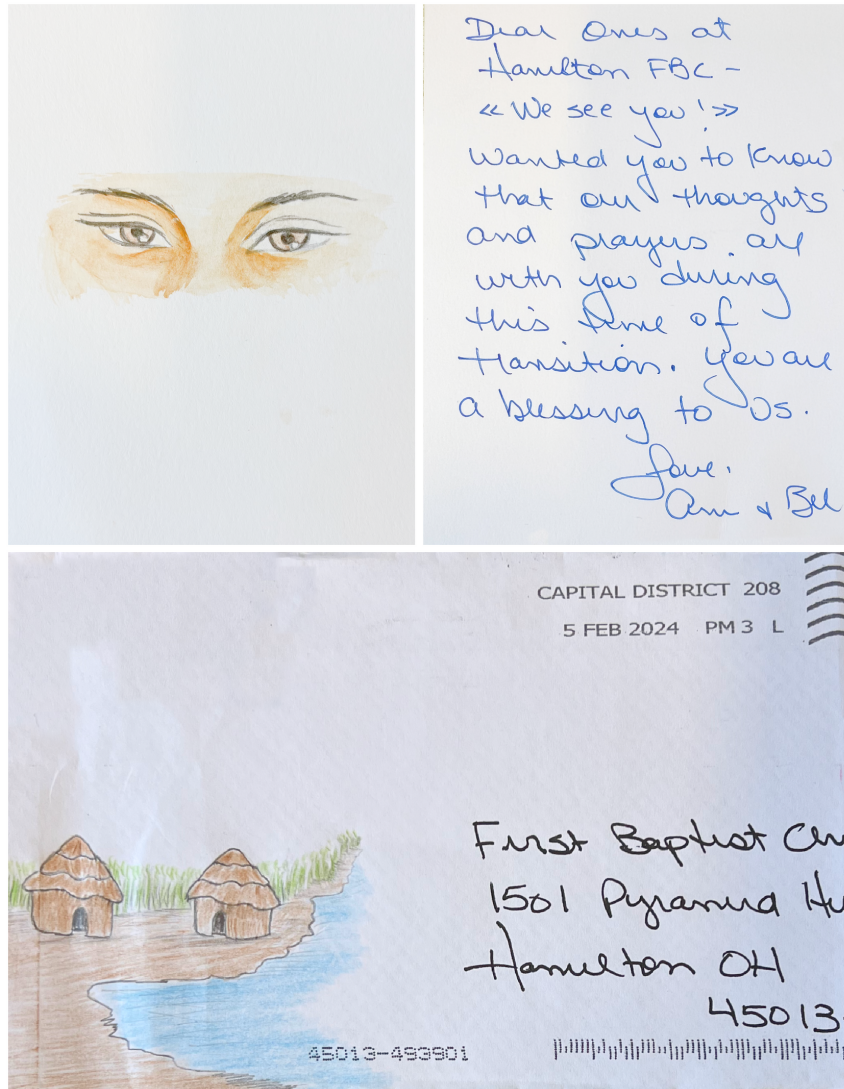 Dear Ones at
Hamilton FBC -
«We see you!»
Wanted you to know
that our thoughts
and prayers are
with you during
this time of
transition. You are
a blessing to us.
Love,
Ann & Bill
CAPITAL DISTRICT 208
5 FEB 2024 PM 3 L
First Baptist Chu
1501 Pyramid Hi
Hamilton OH
45013-
45013-493901